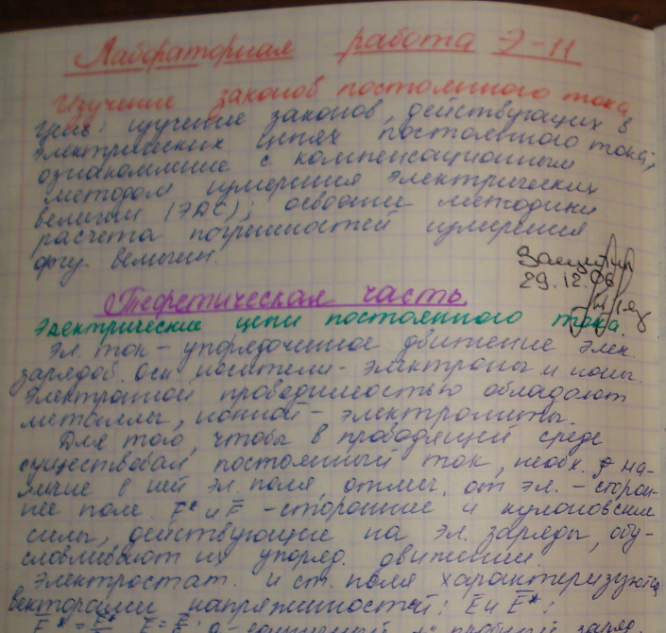 Лабораторная работа Э-11
Изучение законов постоянного тока
Цель: изучение законов, действующих в
электрических цепях постоянного тока;
ознакомление с компенсационным
методом измерения электрических
величин (ЭДС); освоение методики
расчета погрешностей измерения
физ. величин.
Защитил
29.12.06
Теоретическая часть.
Электрические цепи постоянного тока.
Эл. ток - упорядоченное движение элек.
зарядов. Осн. носители - электроны и ионы.
Электронной проводимостью обладают
металлы, ионной - электролиты.
Для того, чтобы в проводящей среде
существовал постоянный ток, необх. на-
личие в ней эл. поля отлич. от эл. - сторон-
нее поле. F* и F - сторонние и кулоновские
силы, действующие на эл. заряды, обу-
славливают их упоряд. движение.
Электростат. и ст. поля характеризуются
векторами напряженностей: E и E*:
пробный заряд.